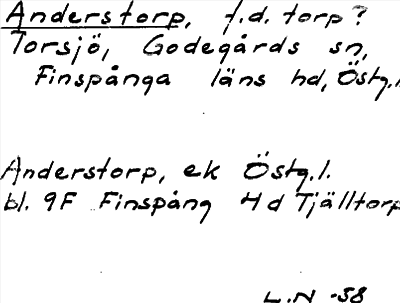 Anderstorp, f.d. torp?
Torsjö, Godegårds sn,
Finspånga läns hd, Östg.l
Anderstorp, ek Östg.l.
bl. 9F Finspång 4d Tjälltorp
L.N -58